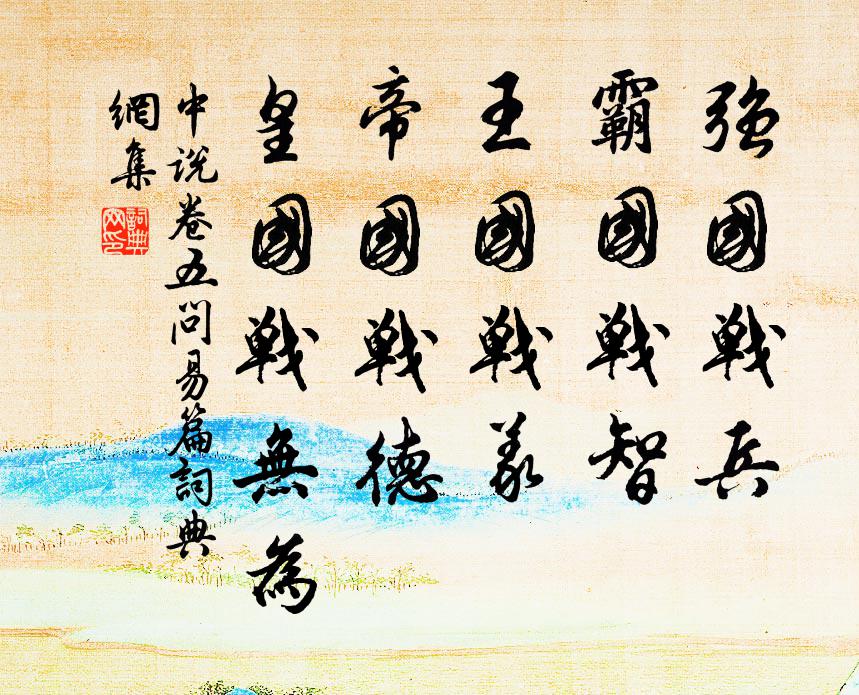 強國戰兵
霸國戰智
王國戰義
帝國戰德
皇國戰無為
中說卷五問易篇詞典
網集
詞典
网印